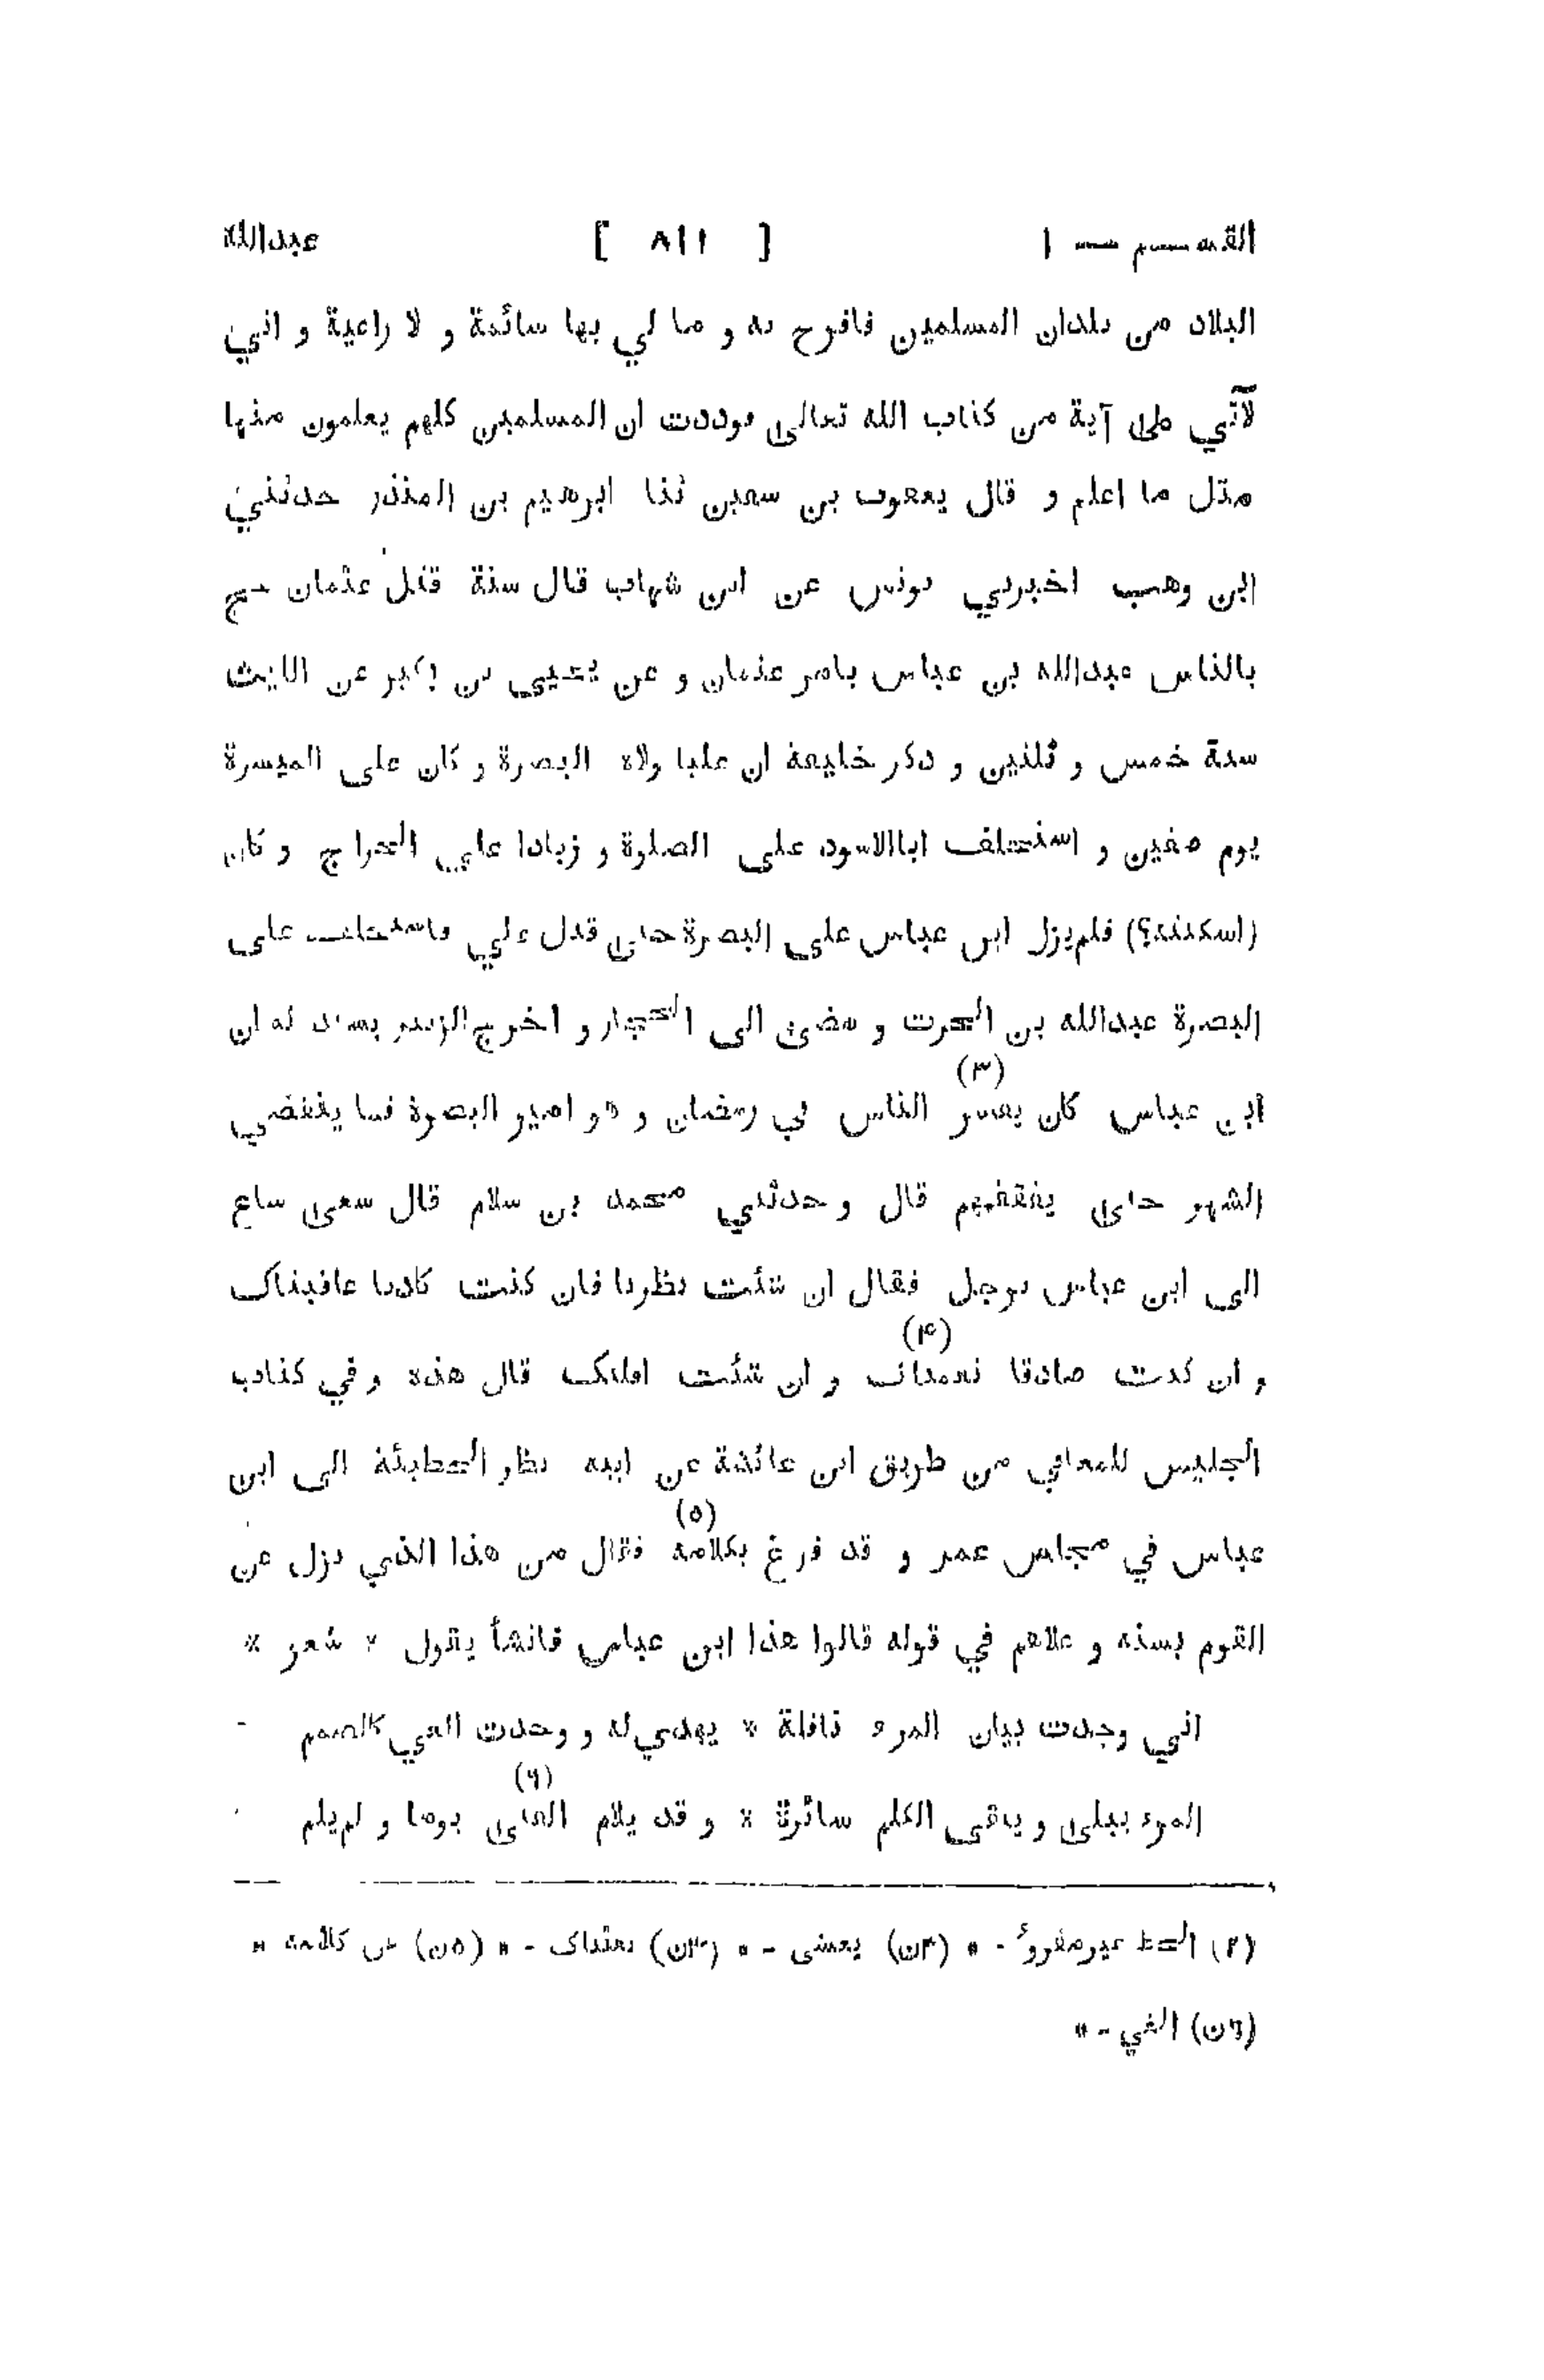 القسم — ١ [ ٨١١ ] عبدالله
البلاد من بلدان المسلمين فافرح به و ما لي بها سائمة و لا راعية و اني
لآتي على آية من كتاب الله تعالى فوددت ان المسلمين كلهم يعلمون منها
مثل ما اعلم و قال يعقوب بن سفين ثنا ابرهيم بن المنذر حدثني
ابن وهب اخبرني يونس عن ابن شهاب قال سنة قتل عثمان حج
بالناس عبدالله بن عباس بامر عثمان و عن يحيى بن بكير عن الليث
سنة خمس و ثلثين و ذكر خليفة ان عليا ولاه البصرة و كان على الميسرة
يوم صفين و استخلف اباالاسود على الصلوة و زيادا على الخراج و كان
(استكتبه؟) فلم يزل ابن عباس على البصرة حتى قتل علي فاستخلف على
البصرة عبدالله بن الحرث و مضى الى الحجاز و اخرج الزبير بسند له ان
ابن عباس كان يفسر (٣) الناس في رمضان و هو امير البصرة فما ينقضي
الشهر حتى يفقههم قال و حدثني محمد بن سلام قال سعى ساع
الى ابن عباس برجل فقال ان شئت نظرنا فان كنت كاذبا عاقبناك
و ان كنت صادقا (٤) و ان شئت اقلتك قال هذه و في كتاب
الجليس للمعافي من طريق ابن عائشة عن ابيه نظر الحطيئة الى ابن
عباس في مجلس عمر و قد فرغ بكلامه (٥) فقال من هذا الذي نزل عن
القوم بسنه و علاهم في قوله قالوا هذا ابن عباس فانشأ يقول * شعر *
اني وجدت بيان المرء نافلة * يهدي له و وجدت العي كالصمم
المرء يبلى و يبقى الكلم سائرة * و قد يلام الفتى (٦) يوما و لم يلم
(٢) الخط غير مقروء - * (٣ن) يعشى - * (٤ن) - * (٥ن) من كلامه *
(٦ن) الغي - *